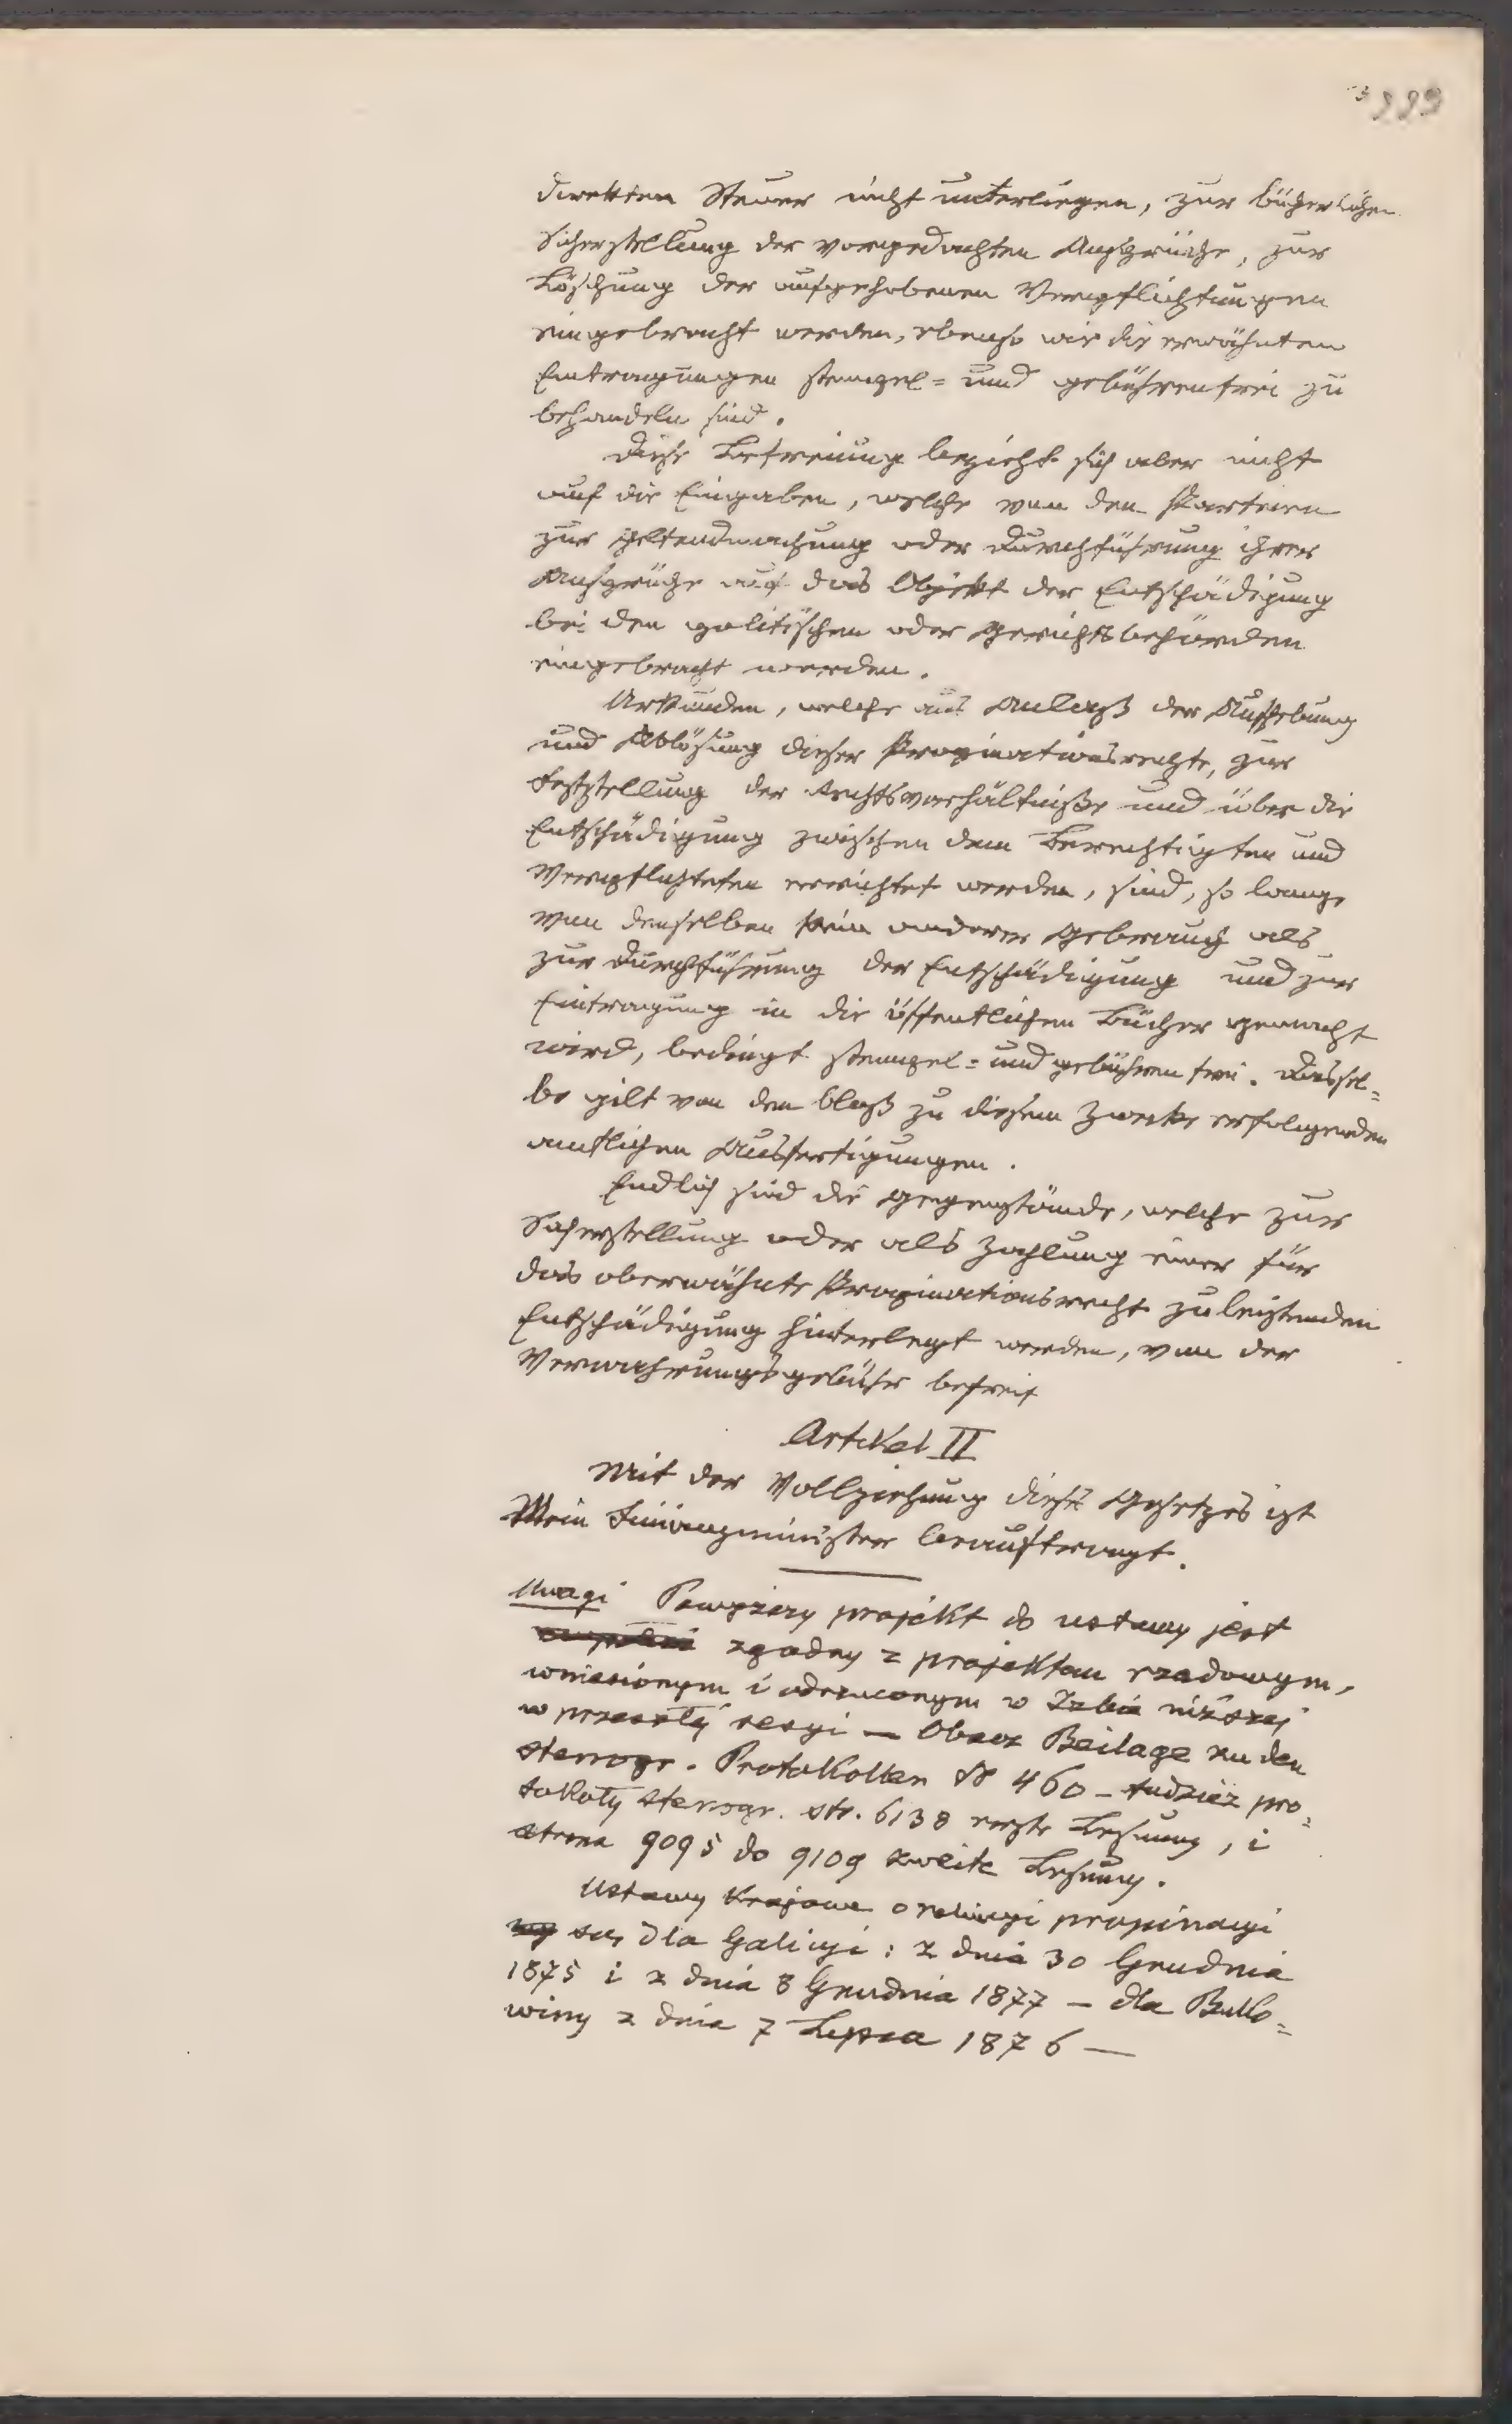 direkten Steuer nicht unterliegen, zur bücherlichen
Sicherstellung der vorgedachten Ansprüche, zur
Löschung der aufgehobenen Verpflichtungen
eingebracht werden, ebenso wie die erwähnten
Eintragungen stempel= und gebührenfrei zu
behandeln sind.
Diese Befreiung bezieht sich aber nicht
auf die Eingaben, welche von den Parteien
zur Geltendmachung oder Durchführung ihrer
Ansprüche auf das Objekt der Entschädigung
bei den politischen oder Gerichtsbehörden
eingebracht werden.
Urkunden, welche aus Anlaß der Aufhebung
und Ablösung dieser Propinationsrechte, zur
Feststellung der Rechtsverhältniße und über die
Entschädigung zwischen dem Berechtigten und
Verpflichteten errichtet werden, sind, so lange
von denselben kein anderer Gebrauch als
zur Durchführung der Entschädigung und zur
Eintragung in die öffentlichen Bücher gemacht
wird, bedingt stempel= und gebührenfrei. Dassel=
be gilt von den bloß zu diesem Zwecke erfolgenden
amtlichen Ausfertigungen.
Endlich sind die Gegenstände, welche zur
Sicherstellung oder als Zahlung einer für
das oberwähnte Propinationsrecht zu leistenden
Entschädigung hinterlegt werden, von der
Verwahrungsgebühr befreit
Artikel II
Mit der Vollziehung dieses Gesetzes ist
Mein Finanzminister beauftragt.
Uwagi Powyższy projekt do ustawy jest
zgodny z projektem rządowym,
wniesionym i odrzuconym w Izbie niższej
w przeszłej sesyi — Obacz Beilage zu den
stenogr. Protokollen № 460 – tudzież pro=
tokoły stenogr. str. 6138 erste Lesung, i
strona 9095 do 9109 zweite Lesung.
Ustawy krajowe o propinacyi
są dla Galicyi: z dnia 30 Grudnia
1875 i z dnia 8 Grudnia 1877 — dla Buko=
winy z dnia 7 Lipca 1876 —